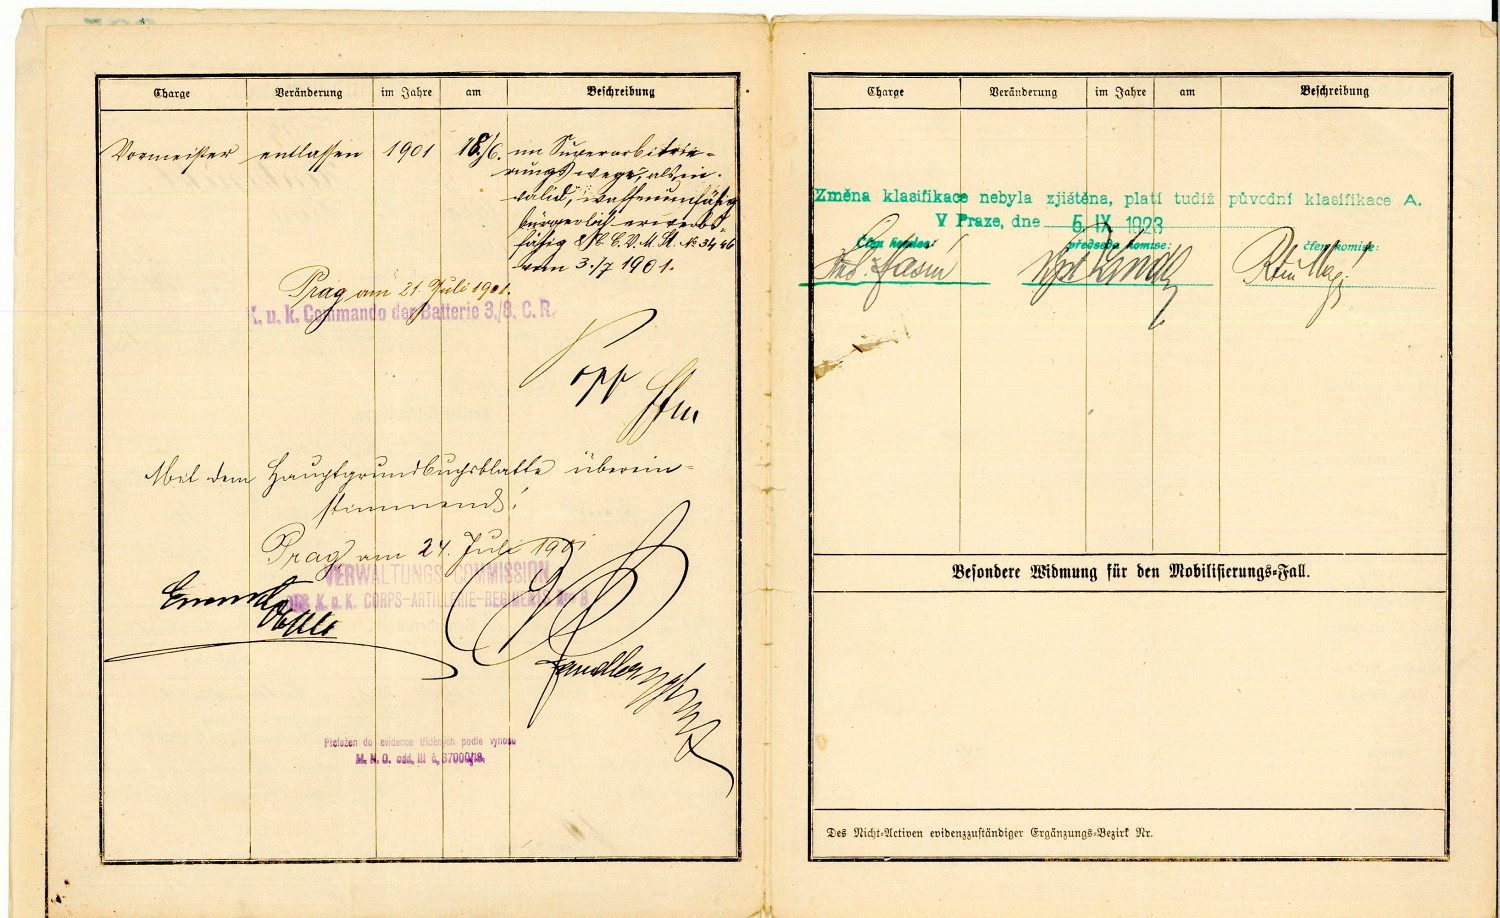 Charge Veränderung im Jahre am Beschreibung
Vormeister entlassen 1901 18./6. im Superarbitrie-
rungswege, als in-
valid, waffenunfähig
bürgerlich erwerbs-
fähig
vom 3./7 1901.
Prag am 21. Juli 1901.
K. u. k. Commando der Batterie 3./8. C. R.
Popp Hptm
Mit dem Hauptgrundbuchsblatte überein-
stimmend!
Prag am 24. Juli 1901
VERWALTUNGS-COMMISSION
DES K. u. K. CORPS-ARTILLERIE-REGIMENTS Nr. 8
Přeložen do evidence tříděných podle výnosu
M. N. O. odd. III č. 37000/19.
Charge Veränderung im Jahre am Beschreibung
Změna klasifikace nebyla zjištěna, platí tudíž původní klasifikace A.
V Praze, dne 5 IX 1923
Člen komise: předseda komise: člen komise:
Besondere Widmung für den Mobilisierungs-Fall.
Des Nicht-Activen evidenzzuständiger Ergänzungs-Bezirk Nr.